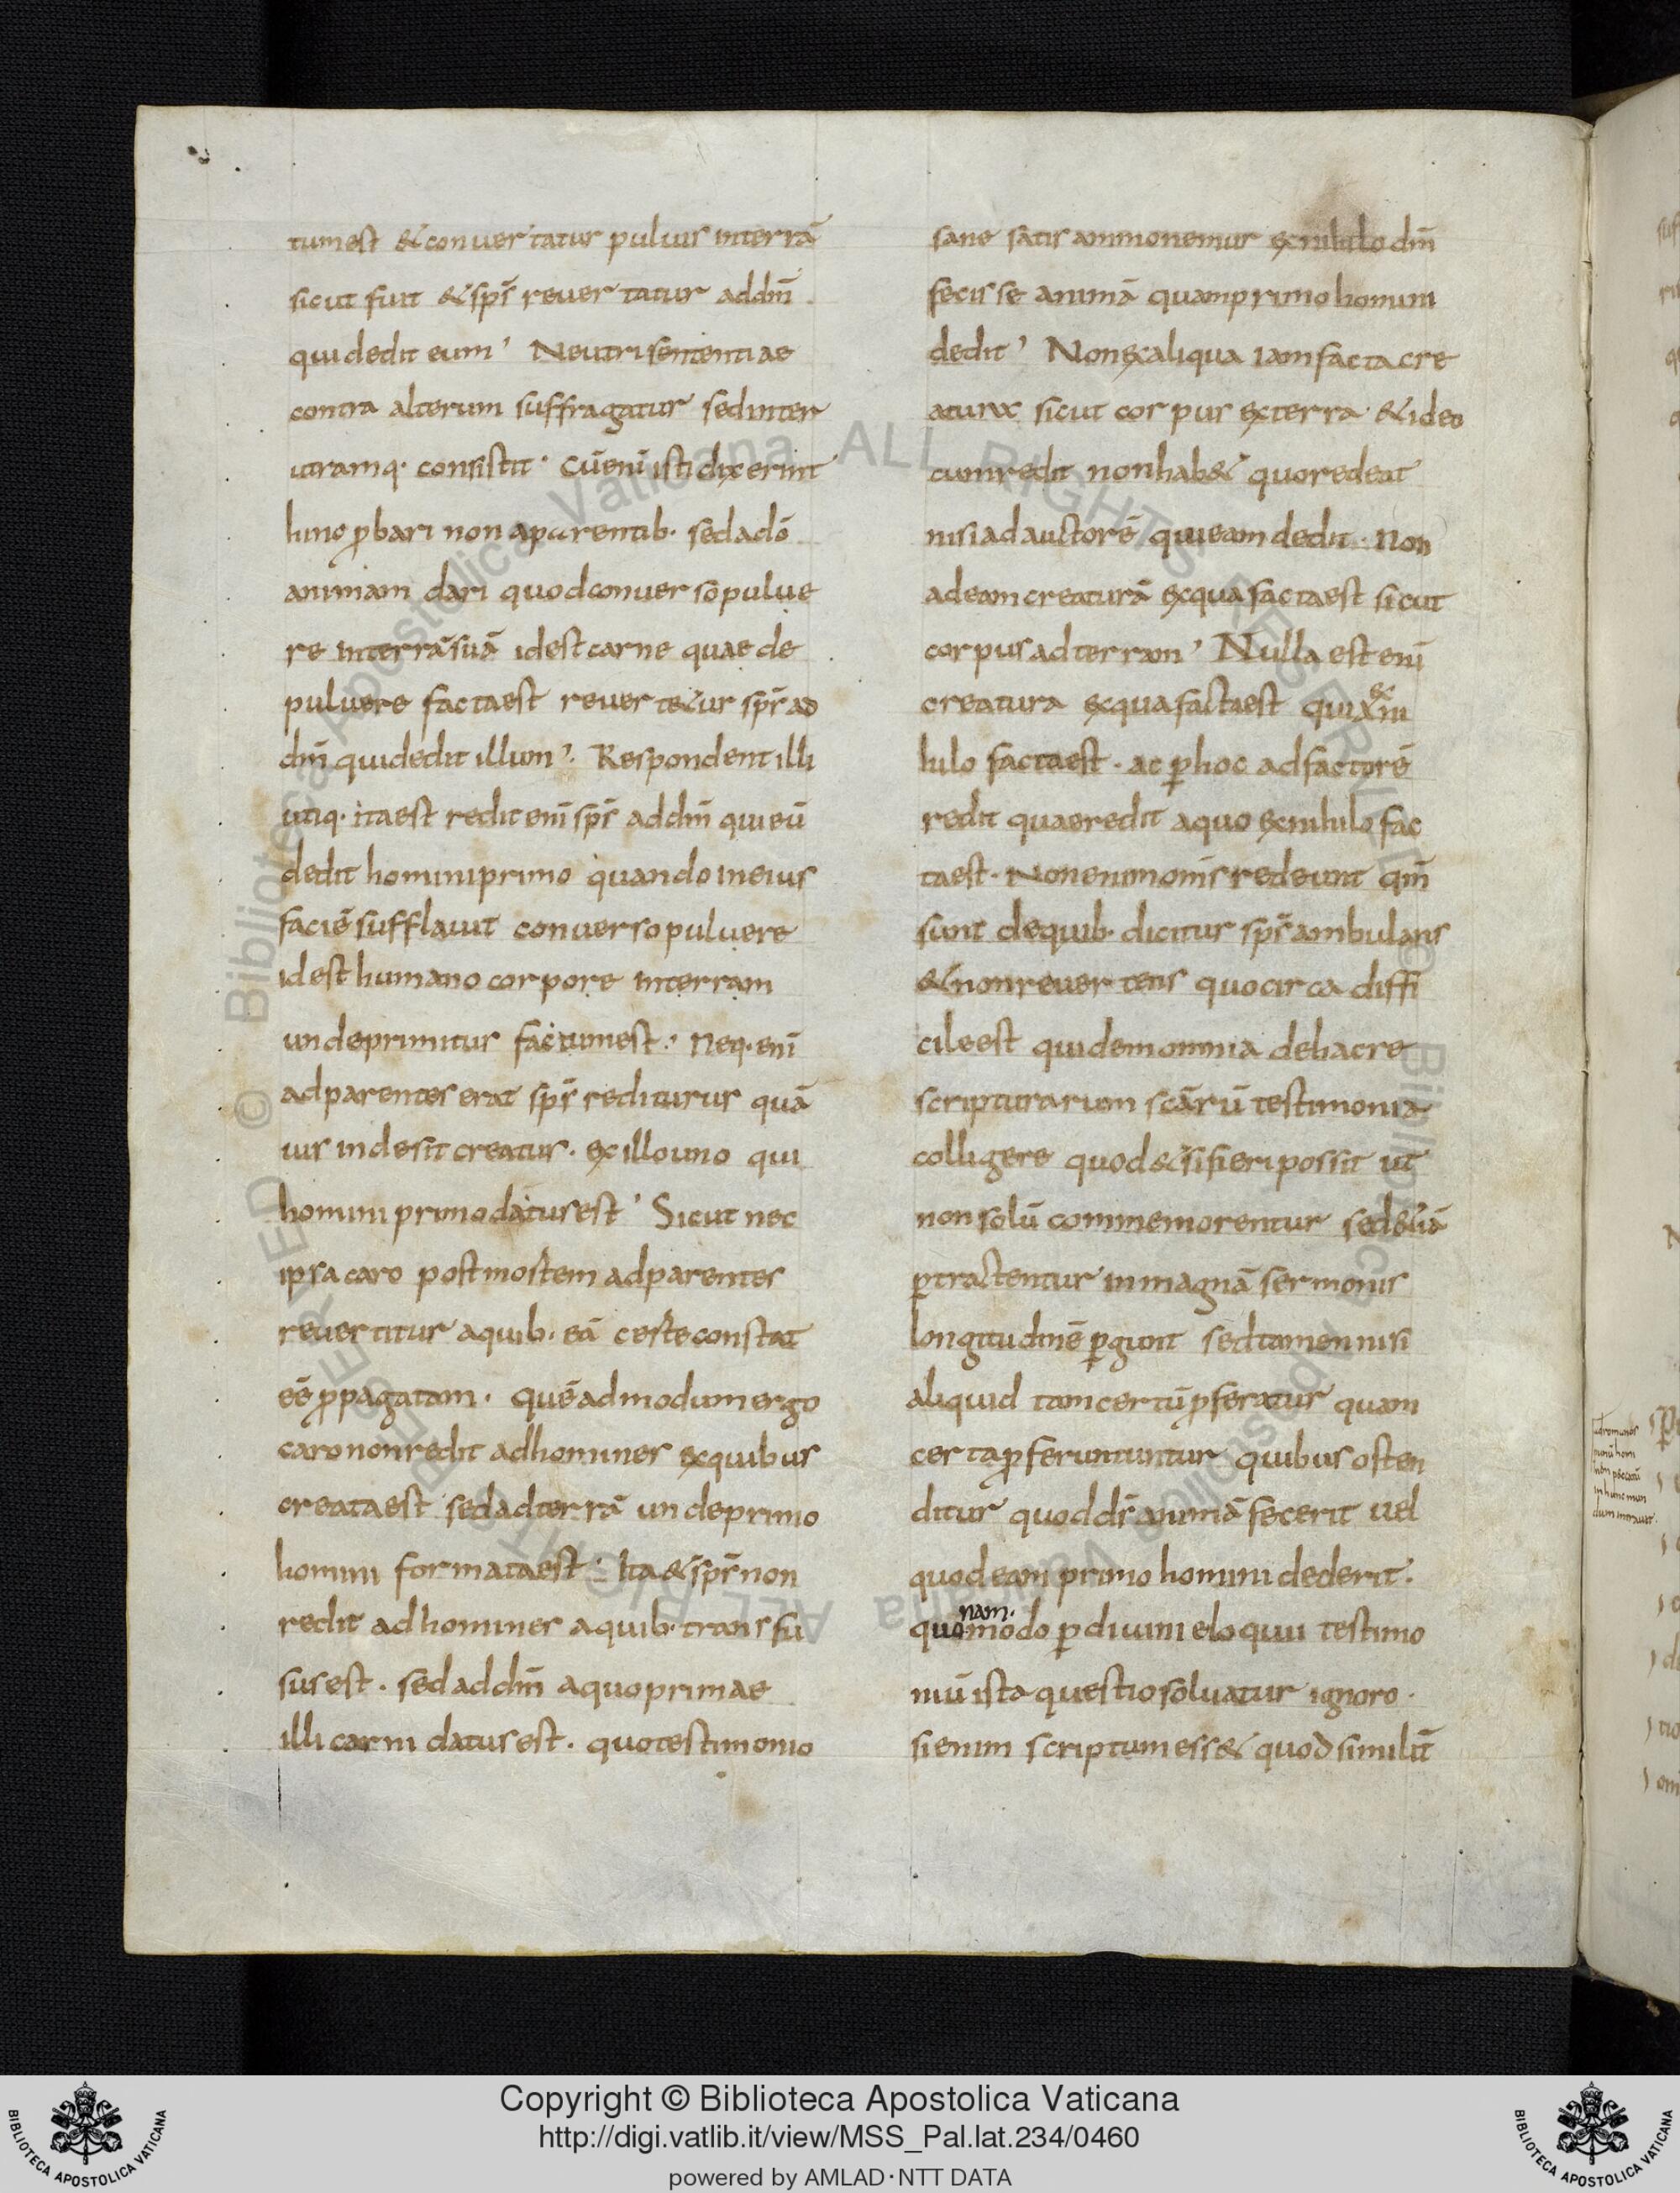 tumest &conuertatur puluis interrā
sicut fuit &sps̄ reuertatur addm̄
quidedit eum, Neutri sententiae
contra alterum suffragatur sedinter
utramq· consistit· Cūenī isti dixerint
hinc ꝓbari non aparentib· sedadō
animam dari quodconuerso pulue
re interrāsuā idest carne quae de
puluere factaest reuertetur sps̄ ad
dm̄ quidedit illum, Respondent illi
utiq· itaest redit enī sps̄ addm̄ qui eū
dedit hominiprimo quando ineius
faciē sufflauit conuerso puluere
idest humano corpore interram
undeprimitus factumest, Neq· enī
adparentes erat sps̄ rediturus quā
uis indesit creatus· exillouno qui
homini primodatusest, Sicut nec
ipsa caro postmortem adparentes
reuertitur aquib· eā certeconstat
eē ꝓpagatam· quēadmodum ergo
caro nonredit adhomines exquibus
creataest sedadterrā undeprimo
homini formataest· Ita &sps̄ non
redit adhomines aquib· transfu
susest· sed addm̄ aquoprimae
illi carni datusest· quotestimonio
sane satis ammonemur exnihilo dm̄
fecisse animā quamprimo homini
dedit, Nonexaliqua iamfacta cre
atura sicut corpus exterra &ideo
cumredit nonhab& quoredeat
nisiadauctorē quieam dedit· Non
adeam creaturā exqua factaest sicut
corpus adterram, Nulla est enī
creatura exquafactaest quia ex ni
hilo factaest· ac ꝑhoc adfactorē
redit quaeredit aquo exnihilo fac
taest· Non enim om̄s redeunt qm̄
sunt dequib· dicitur sps̄ ambulans
&nonreuertens quocirca diffi
cileest quidem omnia dehacre
scripturarum scārū testimonia
colligere quod&sifieri possit ut
non solū commemorentur sed&iā
ꝑtractentur inmagnā sermonis
longitudinē ꝑgunt sedtamen nisi
aliquid tamcertū ꝓferatur quam
certaꝓferuntuntur quibus osten
ditur quodds̄ animā fecerit uel
quod eam primo homini dederit·
nam·
quomodo ꝑ diuini eloquii testimo
niū ista questio soluatur ignoro·
sienim scriptum ess& quod similit̄
Copyright © Biblioteca Apostolica Vaticana
http://digi.vatlib.it/view/MSS_Pal.lat.234/0460
powered by AMLAD·NTT DATA